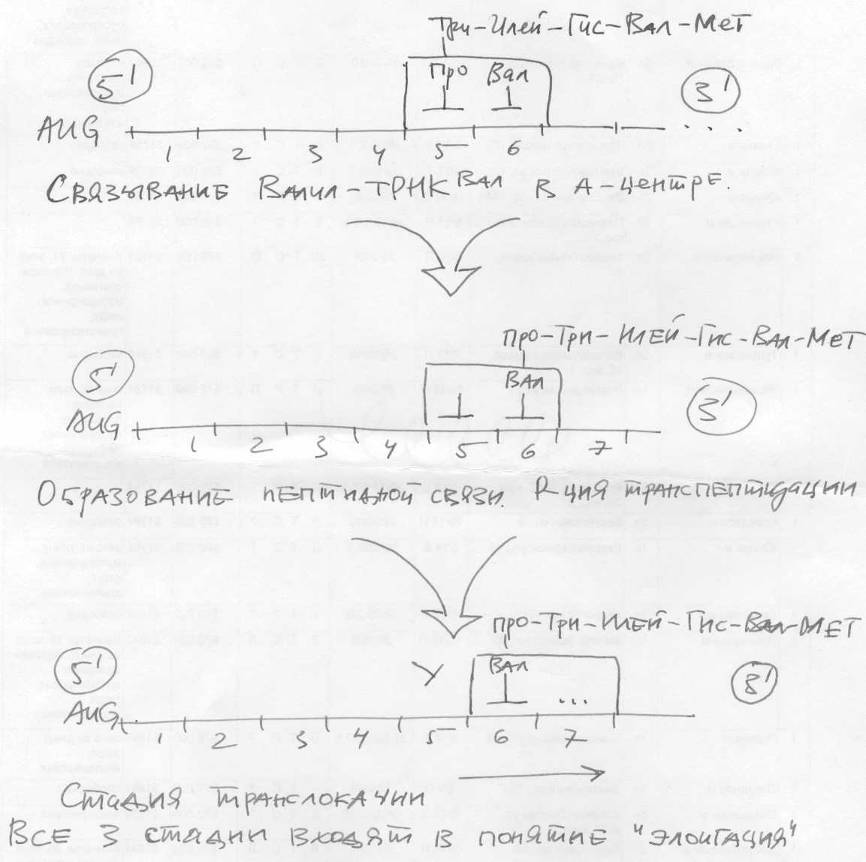 Три-Илей-Гис-Вал-Мет
5' Про Вал 3'
AUG 1 2 3 4 5 6 ...
Связывание Валил-тРНК Вал в А-центре.
про-Три-Илей-Гис-Вал-Мет
5' Вал 3'
AUG 1 2 3 4 5 6 7
Образование пептидной связи. R-ция транспептидации
про-Три-Илей-Гис-Вал-Мет
5' Вал ... 3'
AUG 1 2 3 4 5 6 7
Стадия транслокации
Все 3 стадии входят в понятие "элонгация"